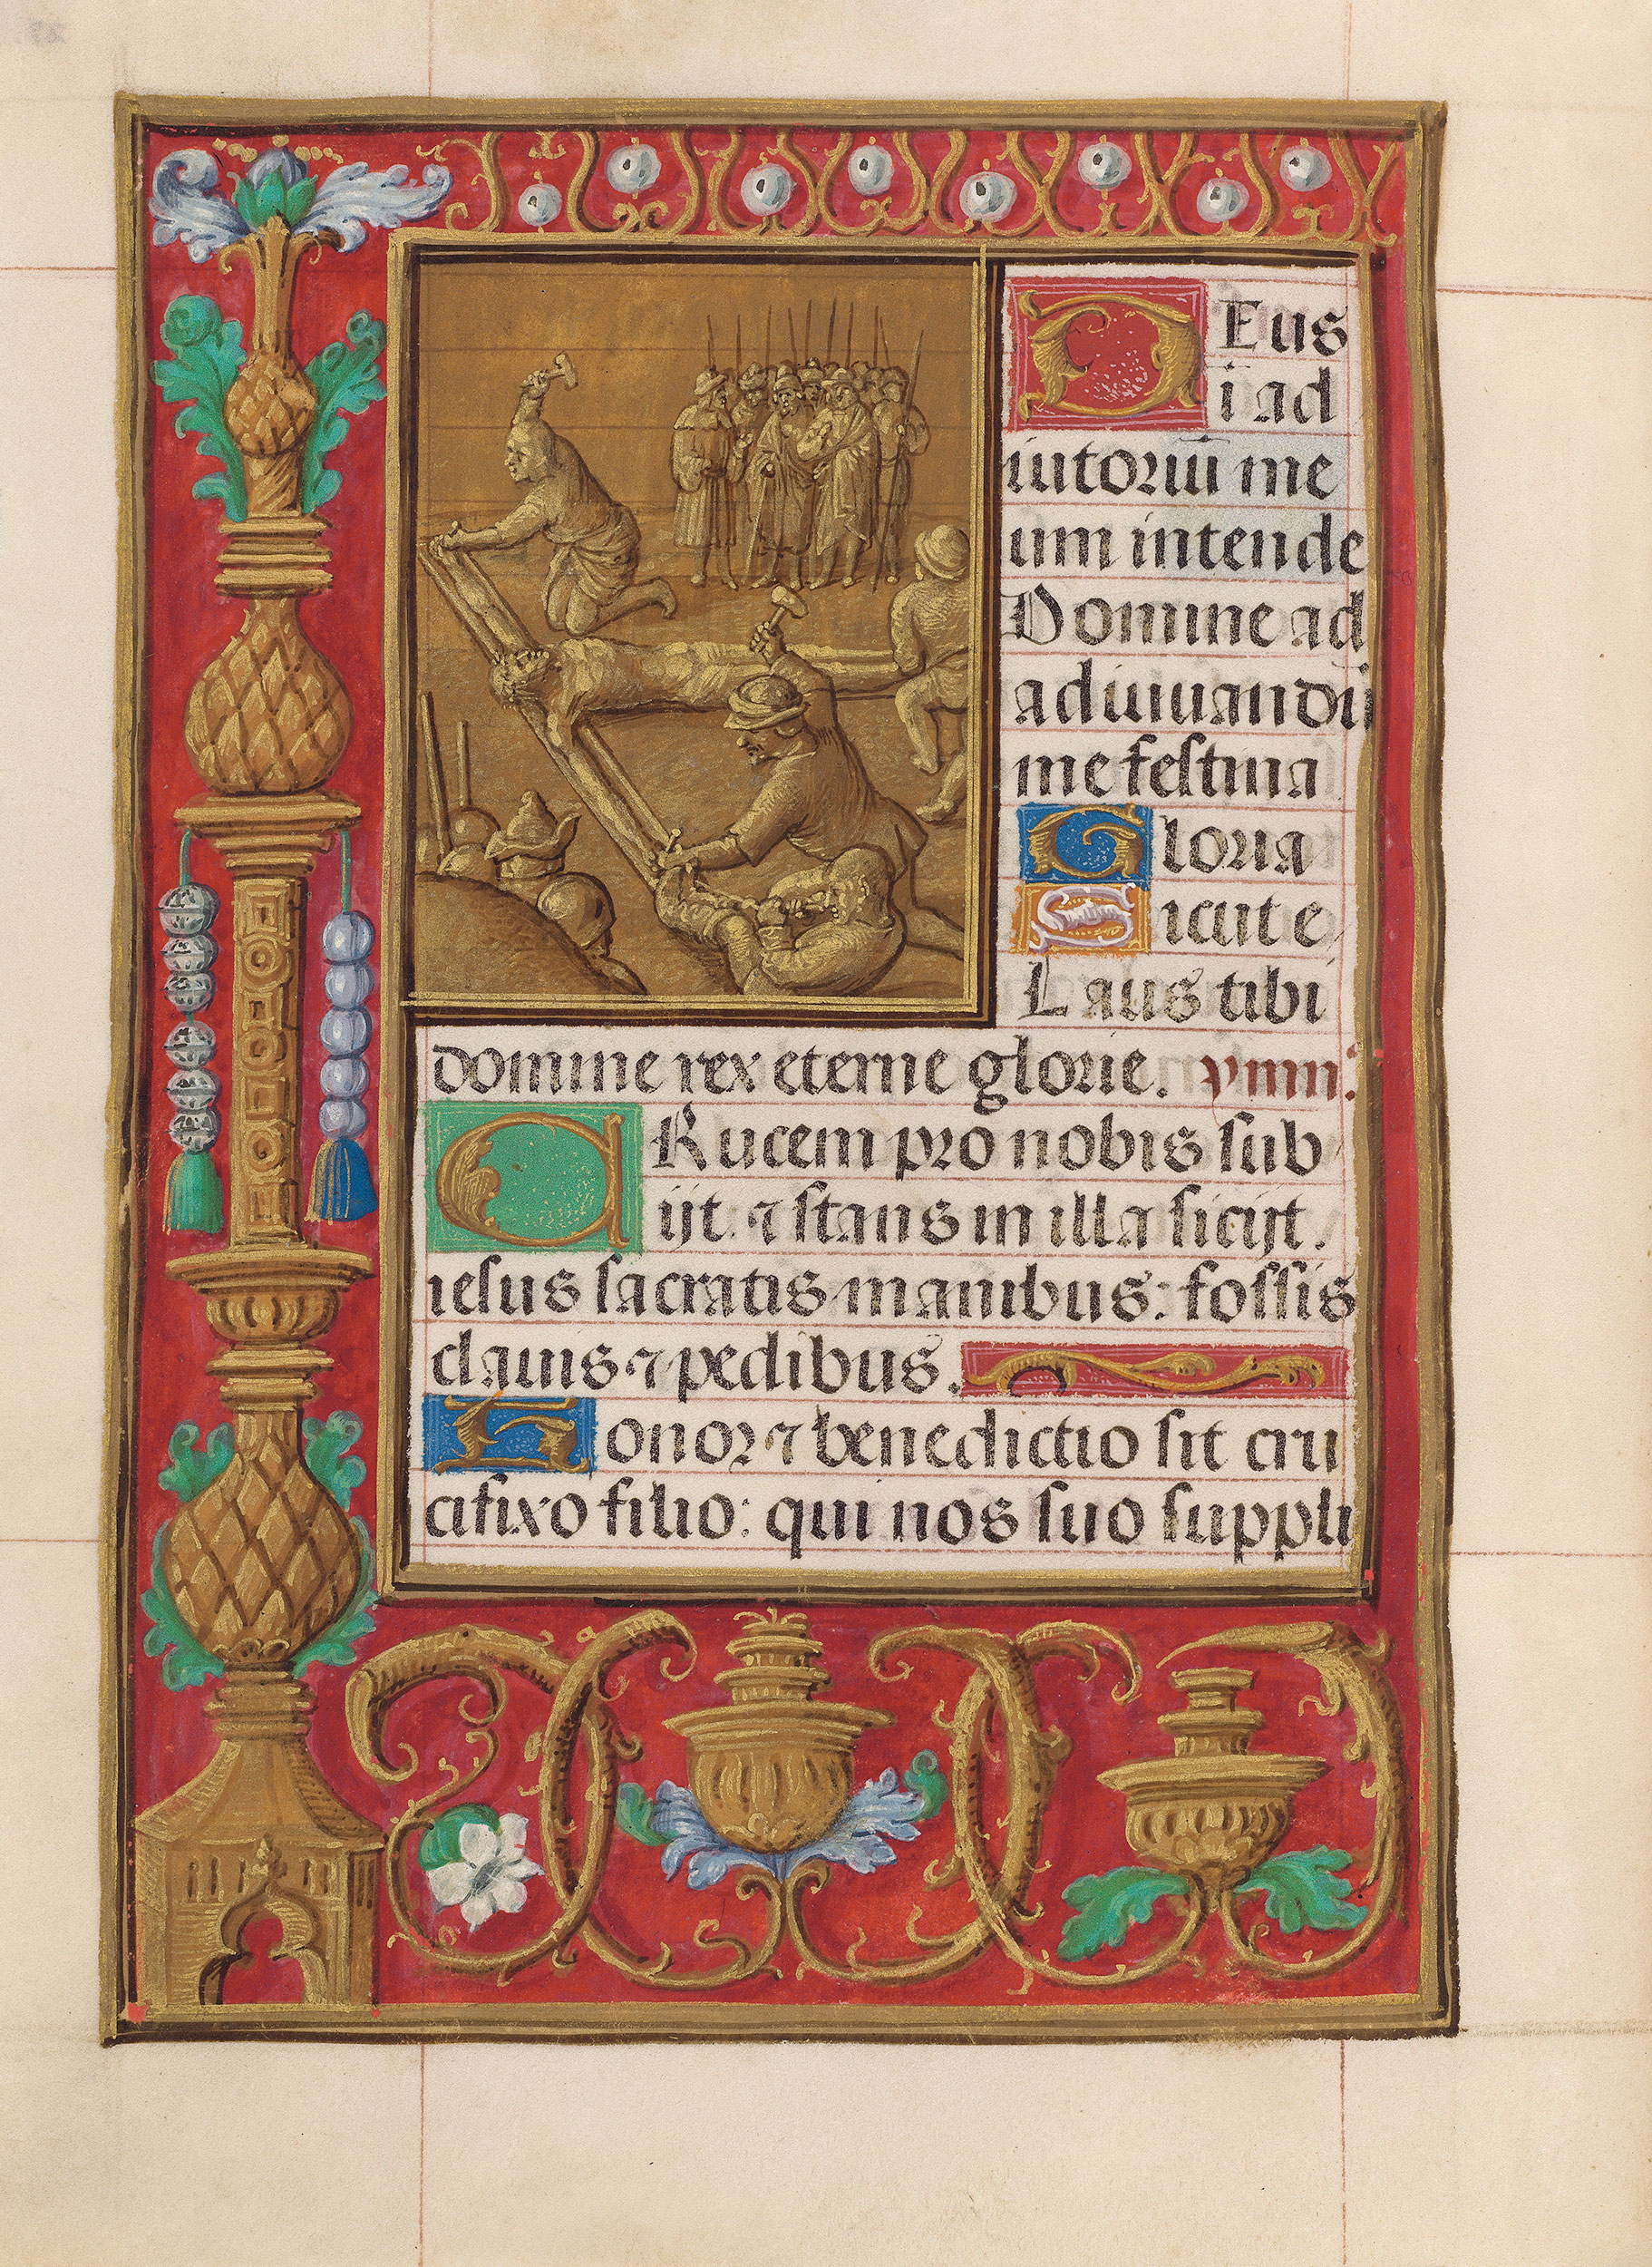 DEus
i ad
iutoriū me
um intende
Domine ad
adiuuandū
me festina
Gloria
Sicut e
Laus tibi
domine rex eterne glorie. ymn:
CRucem pro nobis sub
ijt. ⁊ stans in illa sicijt.
iesus sacratis manibus: fossis
clauis ⁊ pedibus.
Honor ⁊ benedictio sit cru
cifixo filio: qui nos suo suppli